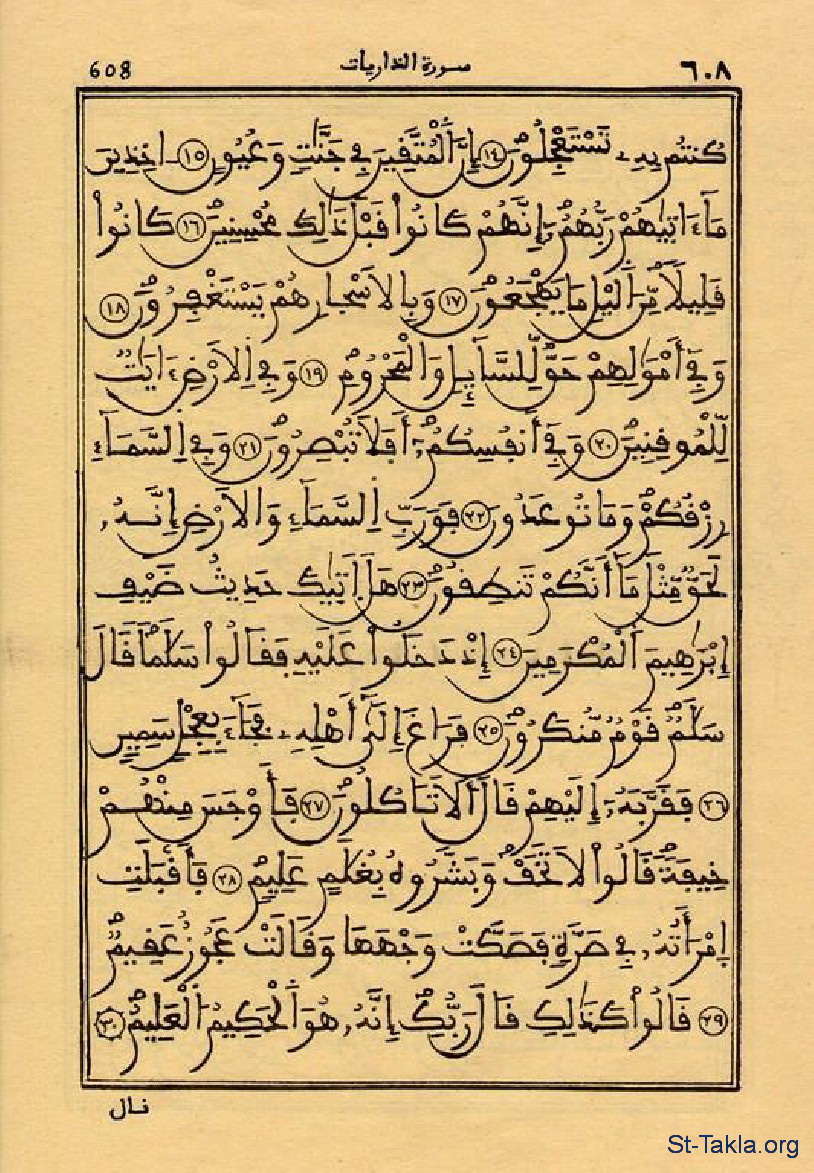 608 سورة الذاريات ٦٠٨
كُنتُم بِهِۦ تَسْتَعْجِلُونَ ١٤ إِنَّ ٱلْمُتَّقِينَ فِي جَنَّٰتٖ وَعُيُونٍ ١٥ ـاخِذِينَ
مَآ ءَاتٜىٰهُمْ رَبُّهُمُۥٓ إِنَّهُمْ كَانُوا۟ قَبْلَ ذَٰلِكَ مُحْسِنِينَ ١٦ كَانُوا۟
قَلِيلًا مِّنَ ٱلَّيْلِ مَا يَهْجَعُونَ ١٧ وَبِالَاسْحِارِ هُمْ يَسْتَغْفِرُونَ ١٨
وَفِےٓ أَمْوَٰلِهِمْ حَقٌّ لِّلسَّآئِلِ وَالْمَحْرُومِ ١٩ وَفِي اِلَارْضِ ءَايَٰتٌ
لِّلْمُوقِنِينَ ٢٠ وَفِےٓ أَنفُسِكُمُۥٓ أَفَلَا تُبْصِرُونَ ٢١ وَفِي اِلسَّمَآءِ
رِزْقُكُمْ وَمَا تُوعَدُونَ ٢٢ فَوَرَبِّ اِلسَّمَآءِ وَالَارْضِ إِنَّهُۥ
لَحَقٌّ مِّثْلَ مَآ أَنَّكُمْ تَنطِقُونَ ٢٣ هَلَ اَتٜىٰكَ حَدِيثُ ضَيْفِ
إِبْرَٰهِيمَ اَلْمُكْرَمِينَ ٢٤ إِذْ دَخَلُوا۟ عَلَيْهِ فَقَالُوا۟ سَلَٰمًا قَالَ
سَلَٰمٌ قَوْمٌ مُّنكَرُونَ ٢٥ فَرَاغَ إِلَىٰٓ أَهْلِهِۦ فَجَآءَ بِعِجْلٍ سَمِينٍ
٢٦ فَقَرَّبَهُۥٓ إِلَيْهِمْ قَالَ أَلَا تَاكُلُونَ ٢٧ فَأَوْجَسَ مِنْهُمْ
خِيفَةً قَالُوا۟ لَا تَخَفْ وَبَشَّرُوهُ بِغُلَٰمٍ عَلِيمٍ ٢٨ فَأَقْبَلَتِ
اِمْرَأَتُهُۥ فِي صَرَّةٍ فَصَكَّتْ وَجْهَهَا وَقَالَتْ عَجُوزٌ عَقِيمٌ
٢٩ قَالُوا۟ كَذَٰلِكِ قَالَ رَبُّكِ إِنَّهُۥ هُوَ اَلْحَكِيمُ اَلْعَلِيمُ ٣٠
قال
St-Takla.org